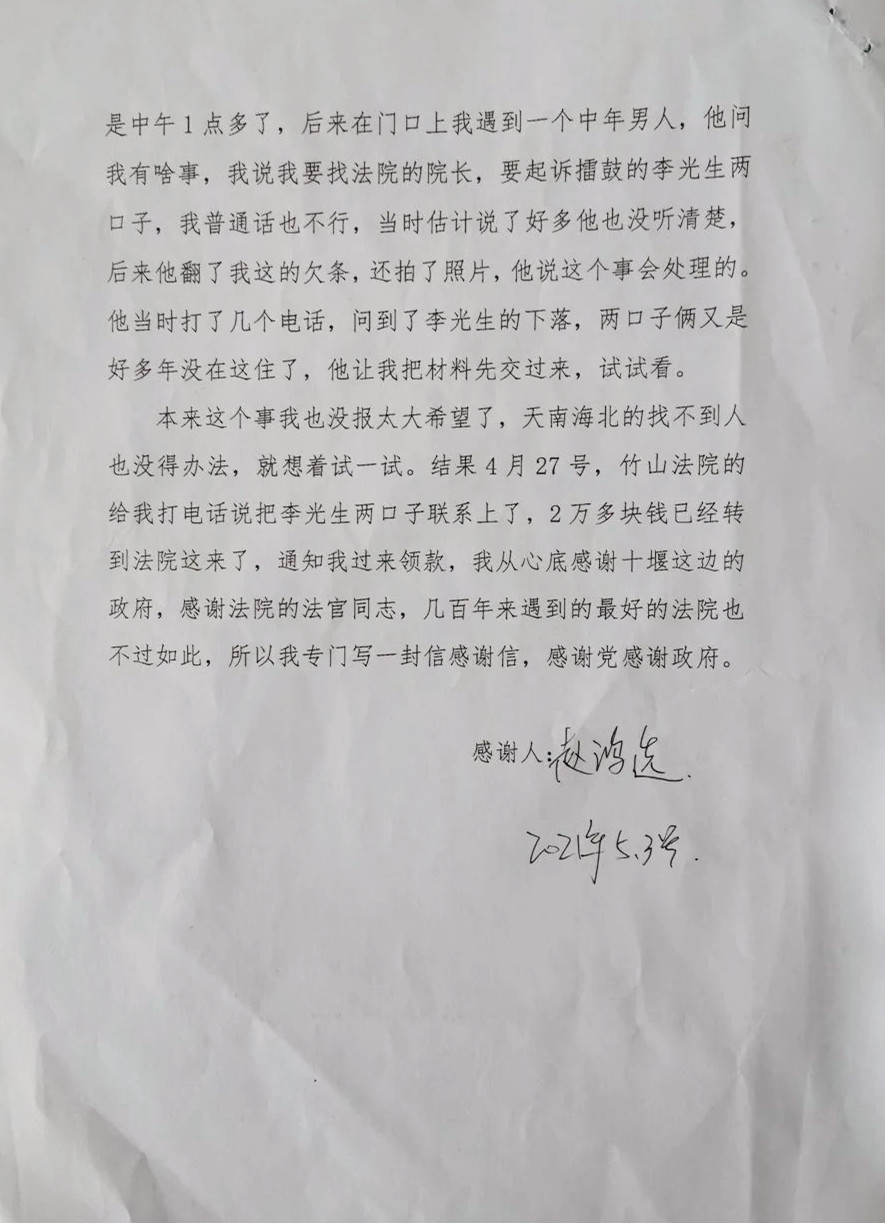 是中午1点多了，后来在门口上我遇到一个中年男人，他问
我有啥事，我说我要找法院的院长，要起诉擂鼓的李光生两
口子，我普通话也不行，当时估计说了好多他也没听清楚，
后来他翻了我这的欠条，还拍了照片，他说这个事会处理的。
他当时打了几个电话，问到了李光生的下落，两口子俩又是
好多年没在这住了，他让我把材料先交过来，试试看。
本来这个事我也没报太大希望了，天南海北的找不到人
也没得办法，就想着试一试。结果4月27号，竹山法院的
给我打电话说把李光生两口子联系上了，2万多块钱已经转
到法院这来了，通知我过来领款，我从心底感谢十堰这边的
政府，感谢法院的法官同志，几百年来遇到的最好的法院也
不过如此，所以我专门写一封信感谢信，感谢党感谢政府。
感谢人：赵鸿选
2021年5.3号.